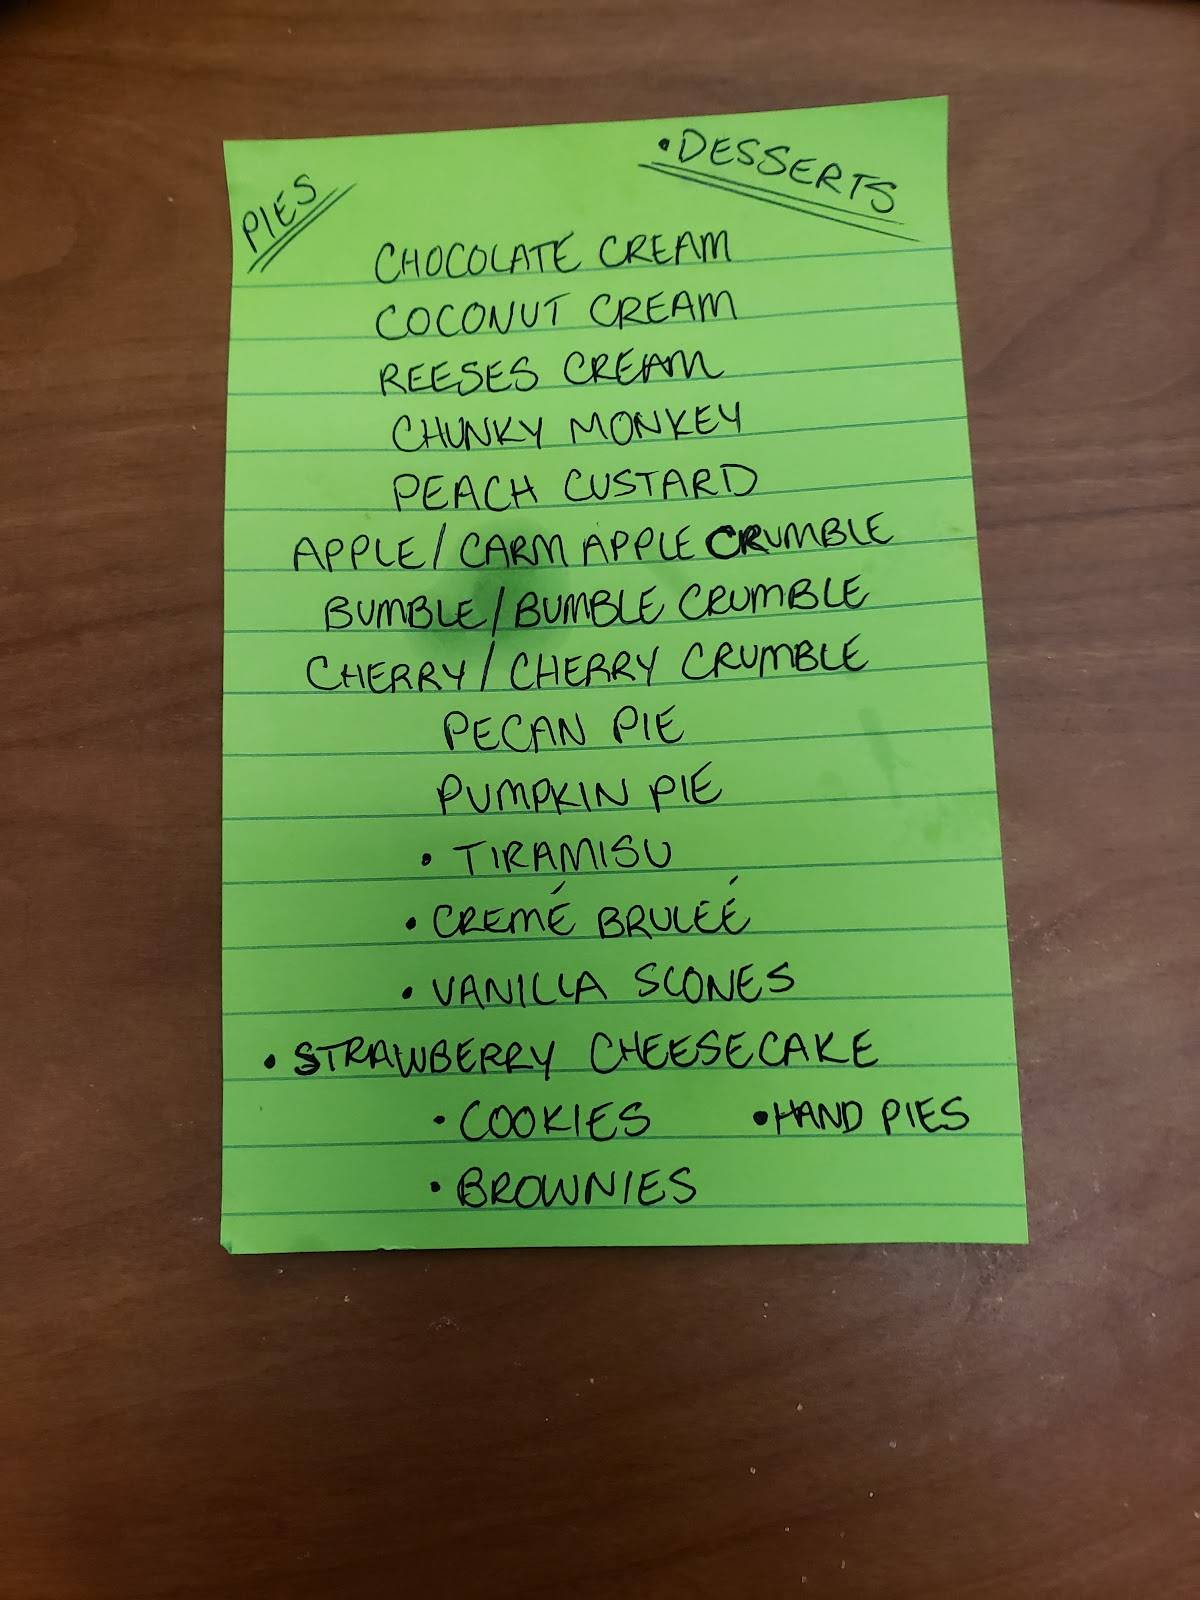 PIES
•DESSERTS
CHOCOLATE CREAM
COCONUT CREAM
REESES CREAM
CHUNKY MONKEY
PEACH CUSTARD
APPLE/CARM APPLE CRUMBLE
BUMBLE/BUMBLE CRUMBLE
CHERRY/CHERRY CRUMBLE
PECAN PIE
PUMPKIN PIE
• TIRAMISU
• CREMÉ BRULEÉ
• VANILLA SCONES
• STRAWBERRY CHEESECAKE
• COOKIES •HAND PIES
• BROWNIES